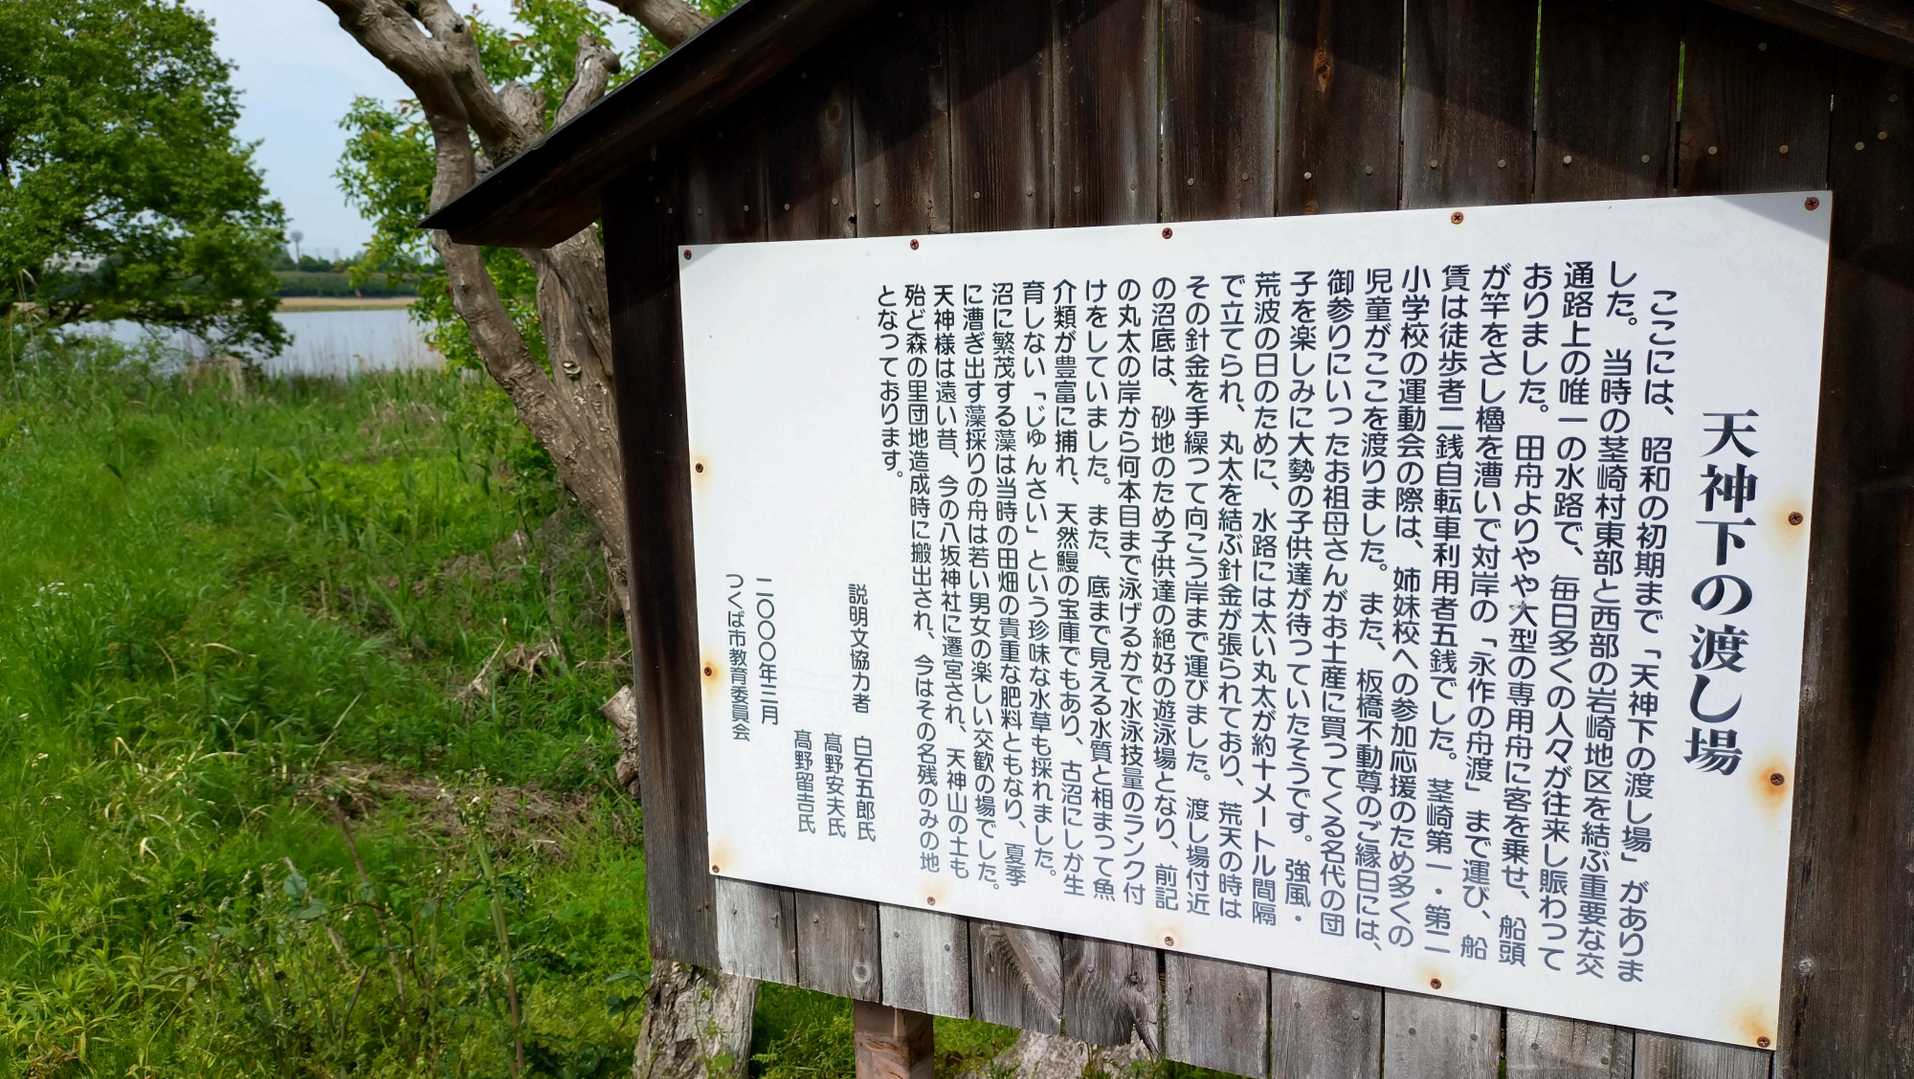 天神下の渡し場
ここには、昭和の初期まで「天神下の渡し場」がありま
した。当時の茎崎村東部と西部の岩崎地区を結ぶ重要な交
通路上の唯一の水路で、毎日多くの人々が往来し賑わって
おりました。田舟よりやや大型の専用舟に客を乗せ、船頭
が竿をさし櫓を漕いで対岸の「永作の舟渡」まで運び、船
賃は徒歩者二銭自転車利用者五銭でした。茎崎第一・第二
小学校の運動会の際は、姉妹校への参加応援のため多くの
児童がここを渡りました。また、板橋不動尊のご縁日には、
御参りにいったお祖母さんがお土産に買ってくる名代の団
子を楽しみに大勢の子供達が待っていたそうです。強風・
荒波の日のために、水路には太い丸太が約十メートル間隔
で立てられ、丸太を結ぶ針金が張られており、荒天の時は
その針金を手繰って向こう岸まで運びました。渡し場付近
の沼底は、砂地のため子供達の絶好の遊泳場となり、前記
の丸太の岸から何本目まで泳げるかで水泳技量のランク付
けをしていました。また、底まで見える水質と相まって魚
介類が豊富に捕れ、天然鰻の宝庫でもあり、古沼にしか生
育しない「じゅんさい」という珍味な水草も採れました。
沼に繁茂する藻は当時の田畑の貴重な肥料ともなり、夏季
に漕ぎ出す藻採りの舟は若い男女の楽しい交歓の場でした。
天神様は遠い昔、今の八坂神社に遷宮され、天神山の土も
殆ど森の里団地造成時に搬出され、今はその名残のみの地
となっております。
説明文協力者 白石五郎氏
高野安夫氏
高野留吉氏
二〇〇〇年三月
つくば市教育委員会